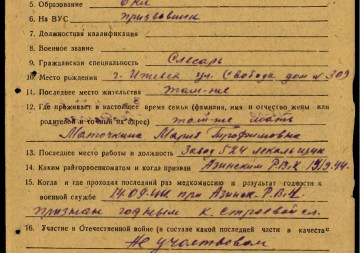 5. Образование 6 кл
6. На ВУС призывник
7. Должностная квалификация
8. Военное звание
9. Гражданская специальность Слесарь
10. Место рождения г. Ижевск ул. Свобода дом № 309
11. Последнее место жительства там-же
12. Где проживает в настоящее время семья (фамилия, имя и отчество жены или
родителей и точный их адрес) там-же мать
Маточкина Мария Трофимовна
13. Последнее место работы и должность Завод 524 лекальщик
14. Каким райгорвоенкоматом и когда призван Азинским Р.В.К. 19/9.44.
15. Когда и где проходил последний раз медкомиссию и результат годности к
военной службе 14.09.44 при Азинск. Р.В.К.
признан годным к строевой сл.
16. Участие в Отечественной войне (в составе какой последней части в качестве
Не участвовал